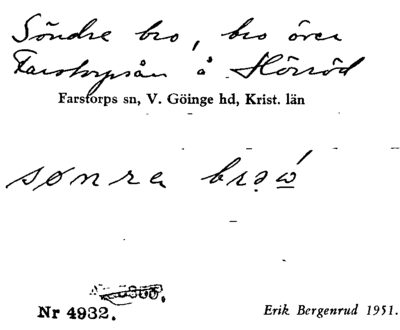 Söndre bro, bro över
Farstorpsån å Hörröd
Farstorps sn, V. Göinge hd, Krist. län
sønra brəẃ
Nr 4932.
Erik Bergenrud 1951.